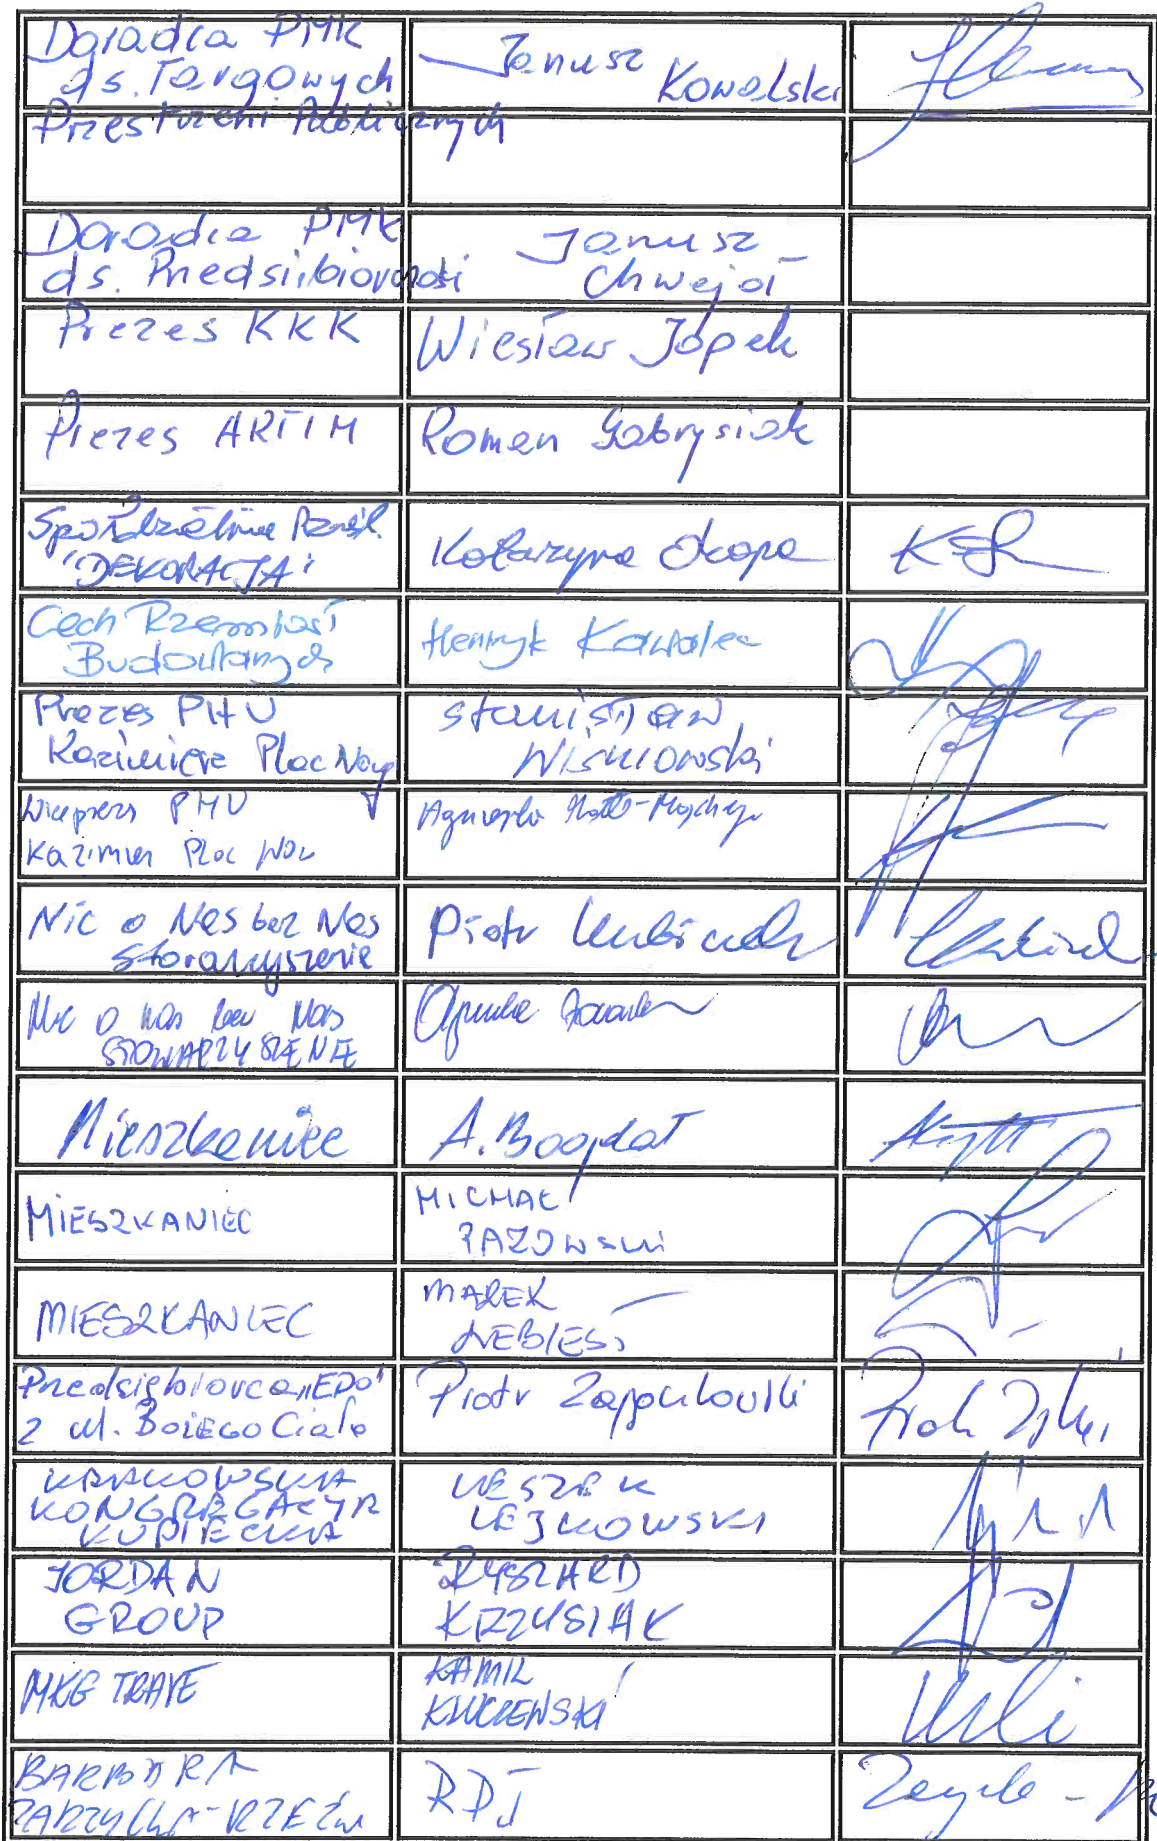 Doradca PMK
ds. Targowych
Przestrzeni Publicznych
Janusz
Kowalski
Doradca PMK
ds. Przedsiębiorczości
Janusz
Chwajoł
Prezes KKK
Wiesław Jopek
Prezes ARTIM
Roman Gabrysiak
Spółdzielnia Rzemieśl.
"DEKORACJA"
Katarzyna Okopa
Cech Rzemiosł
Budowlanych
Henryk Kowalec
Prezes PHU
Kazimierz Plac Nowy
Stanisław
Wiśniowski
Wiceprezes PHU
Kazimierz Plac Now
Agnieszka
Nic o Nas bez Nas
Stowarzyszenie
Piotr Kubiczek
Nic o nas bez Nas
STOWARZYSZENIE
Mieszkaniec
A. Bogdał
MIESZKANIEC
MICHAŁ
MIESZKANIEC
MAREK
Przedsiębiorca "EDO"
z ul. Bożego Ciała
Piotr
KRAKOWSKA
KONGREGACYA
KUPIECKA
LESZEK
LEJKOWSKI
JORDAN
GROUP
RYSZARD
KRZYSIAK
MKG
KAMIL
BARBARA
RDJ